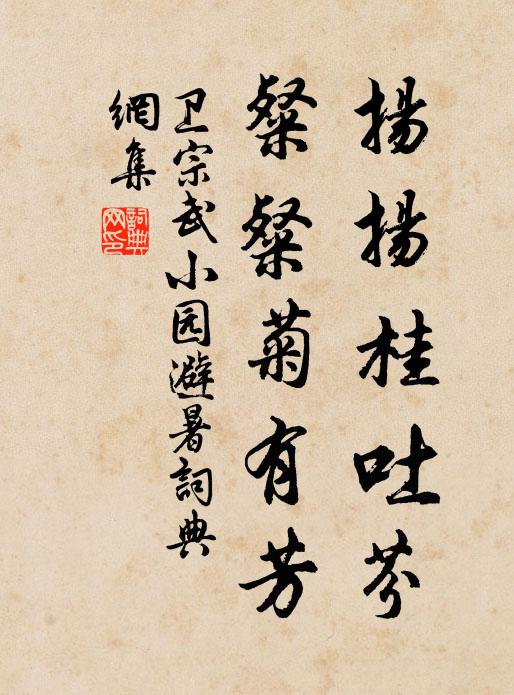 揚揚桂吐芬
粲粲菊有芳
卫宗武小园避暑詞典
網集
詞典
网印